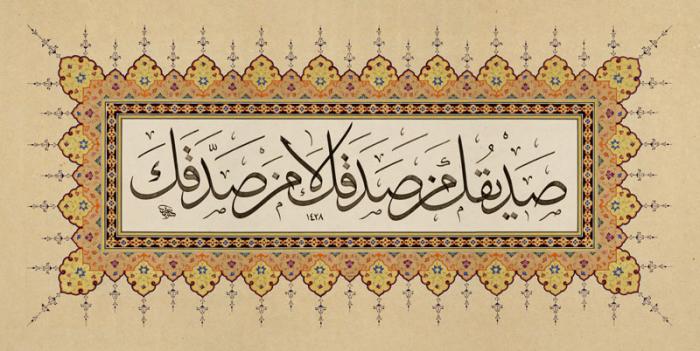 صديقك من صدقك لا من صدّقك
١٤٢٨